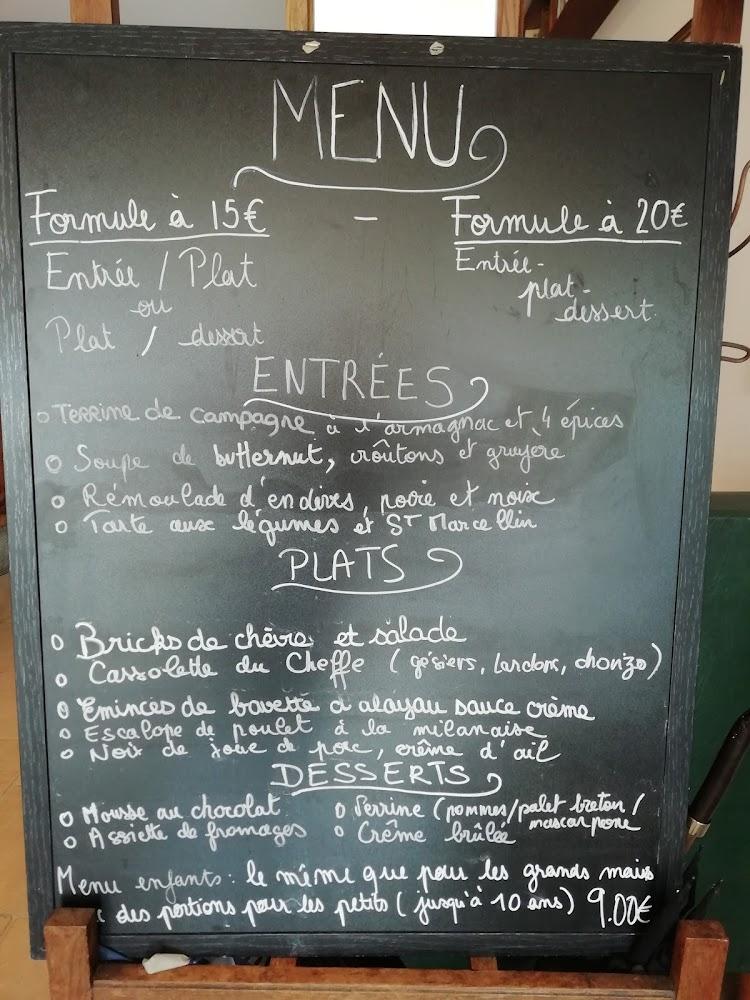 MENU
Formule à 15€ - Formule à 20€
Entrée / Plat
ou
Plat / dessert
Entrée-
plat-
dessert
ENTRÉES
Terrine de campagne à l'armagnac et 4 épices
Soupe de butternut, croûtons et gruyère
Rémoulade d'endives, poire et noix
Tarte aux légumes et ST Marcellin
PLATS
Bricks de chèvre et salade
Cassolette du Cheffe (gésiers, lardons, chorizo)
Emincés de bavette d'aloyau sauce crème
Escalope de poulet à la milanaise
Noix de joue de porc, crème d'ail
DESSERTS
Mousse au chocolat
Assiette de fromages
Verrine (pommes/palet breton/
mascarpone
Crême brûlée
Menu enfants: le même que pour les grands mais
des portions pour les petits (jusqu'à 10 ans) 9.00€